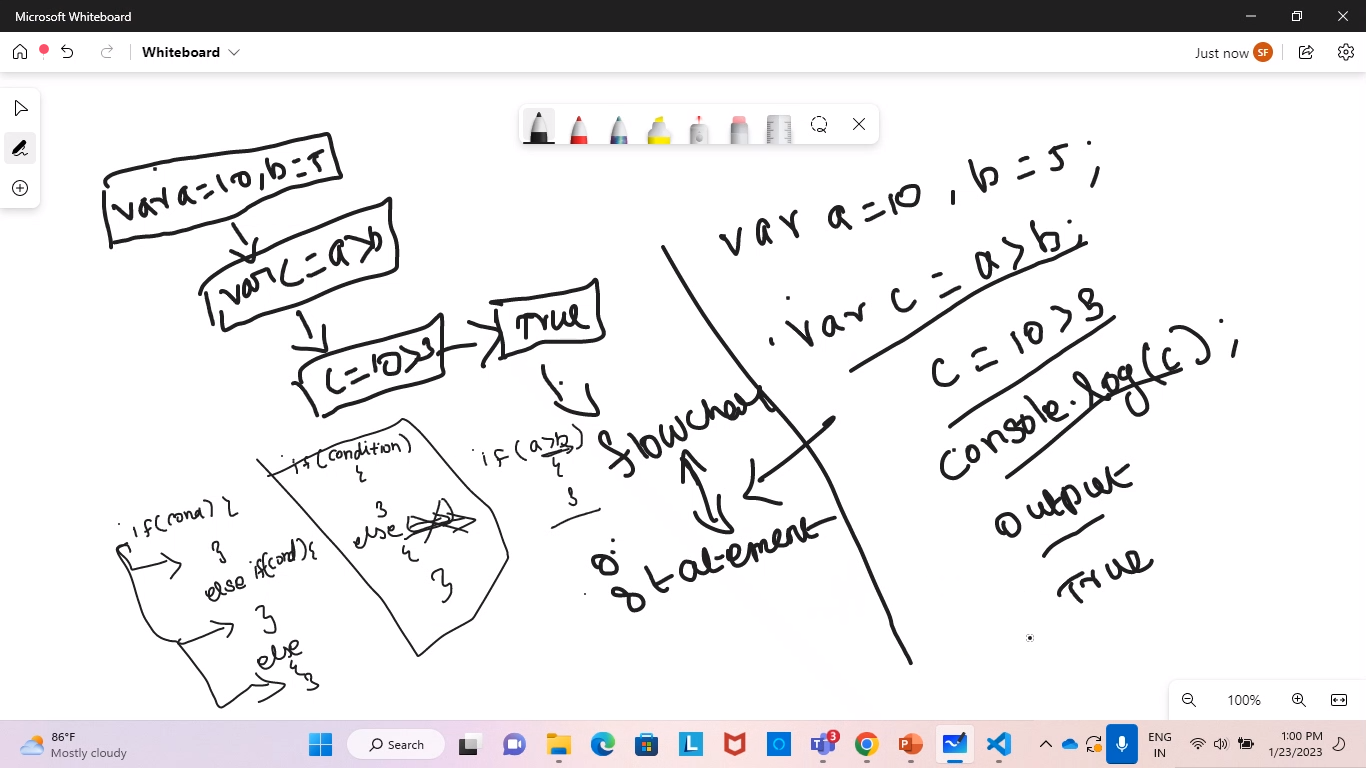 Microsoft Whiteboard
Whiteboard
Just now SF
var a=10,b=5
var c=a>b
c=10>3
True
flowchart
statement
if(condition)
{
}
else
{
}
if(a>b)
{
}
if(cond) {
}
else if(cond){
}
else
{
}
var a=10, b=5;
var c=a>b;
c=10>3
console.log(c);
output
True
100%
86°F
Mostly cloudy
Search
3
ENG
IN
1:00 PM
1/23/2023